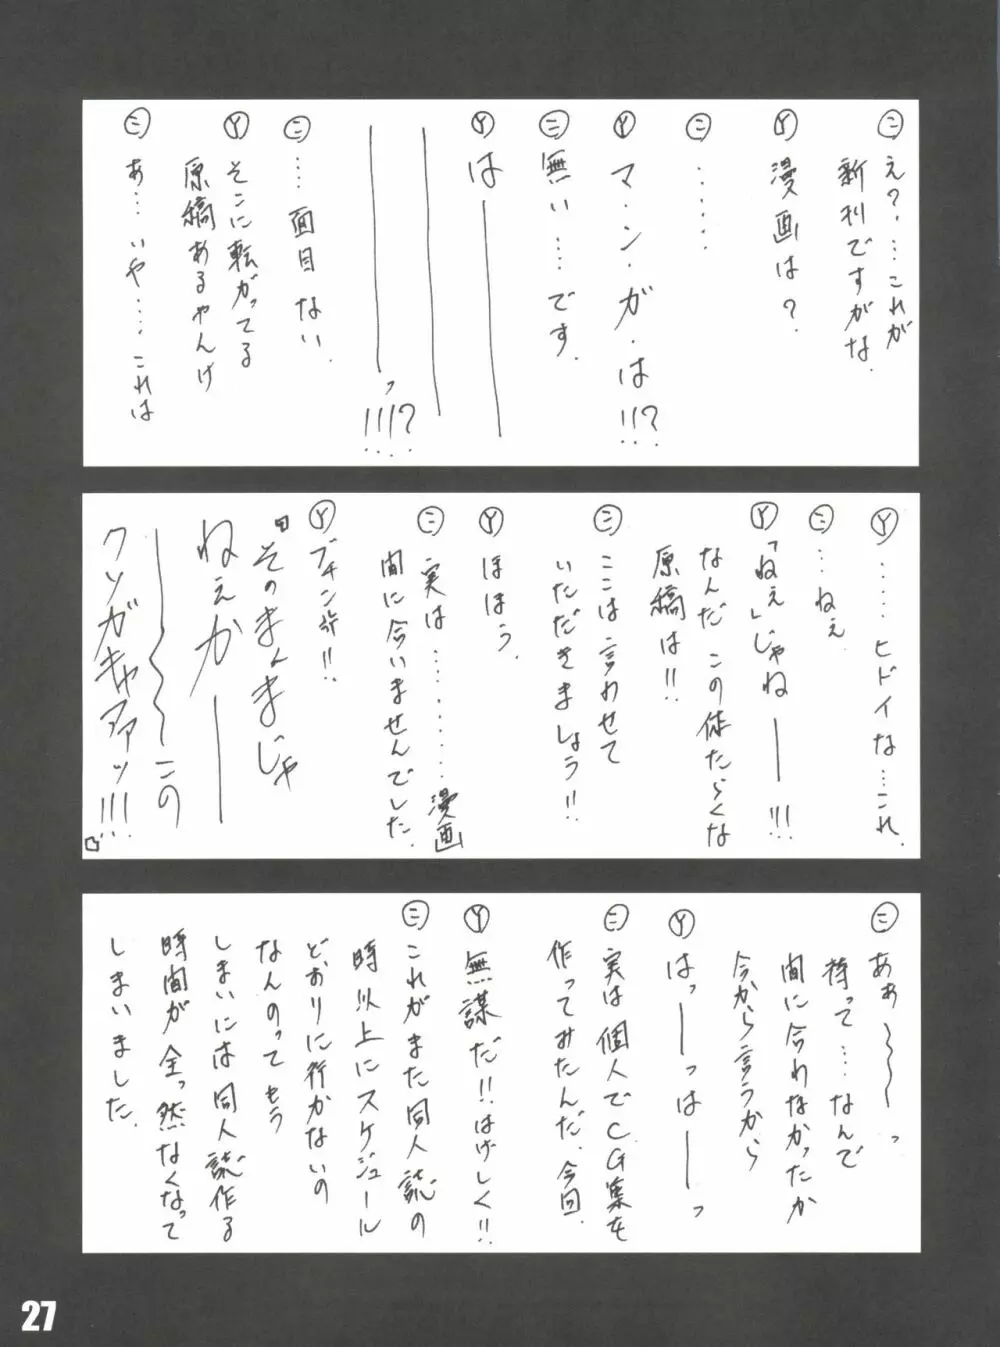 ㊁え？…これが
新刊ですがな．
Ⓨ漫画は？
㊁……
Ⓨマ・ン・ガ・は!!?
㊁無い……です．
Ⓨは――――
――――
――――っ!!!?
㊁……面目ない．
Ⓨそこに転がってる
原稿あるやんけ
㊁あ……いや……これは
Ⓨ……ヒドイな…これ．
㊁…ねぇ
Ⓨ「ねぇ」じゃね――!!!
なんだ この体たらくな
原稿は!!
㊁ここは言わせて
いただきましょう!!
Ⓨほほう．
㊁実は………漫画
間に合いませんでした．
Ⓨブチン!!
『そのまんまじゃ
ねぇか――
――〜〜この
クソガキャアァッ!!!』
㊁あぁ〜〜〜っ
待って…なんで
間に合わなかったか
今から言うから
Ⓨはっ――っは――っ
㊁実は個人でCG集を
作ってみたんだ．今回．
Ⓨ無謀だ!!はげしく!!
㊁これがまた同人誌の
時以上にスケジュール
どおりに行かないの
なんのって もう
しまいには同人誌作る
時間が全っ然なくなって
しまいました．
27